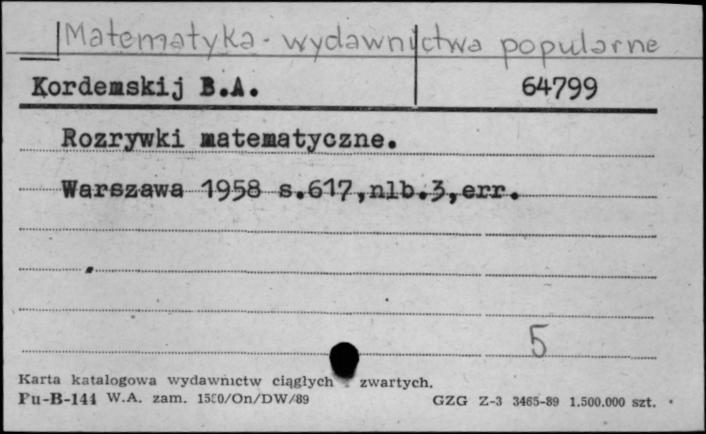 Matematyka - wydawnictwa popularne
Kordemskij B.A. 64799
Rozrywki matematyczne.
Warszawa 1958 s.617,nlb.3,err.
5
Karta katalogowa wydawnictw ciągłych - zwartych.
Pu-B-144 W.A. zam. 1580/On/DW/89 GZG Z-3 3465-89 1.500.000 szt.